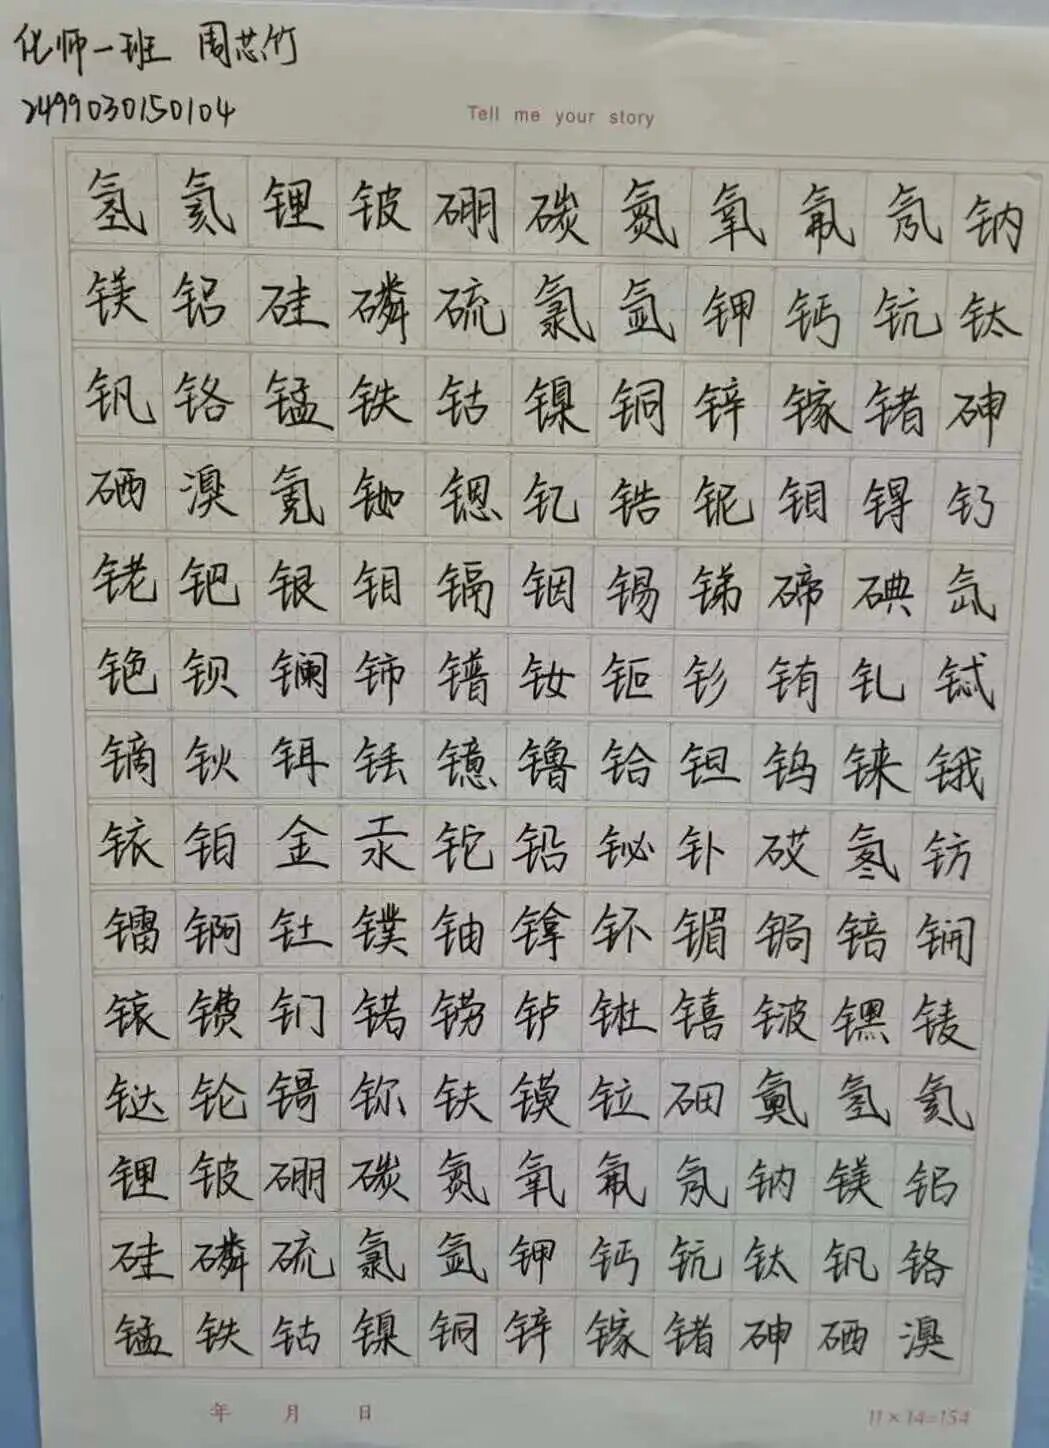 化师一班 周芯竹
2499030150104
Tell me your story
氢氦锂铍硼碳氮氧氟氖钠
镁铝硅磷硫氯氩钾钙钪钛
钒铬锰铁钴镍铜锌镓锗砷
硒溴氪铷锶钇锆铌钼锝钌
铑钯银钼镉铟锡锑碲碘氙
铯钡镧铈镨钕钷钐铕钆铽
镝钬铒铥镱镥铪钽钨铼锇
铱铂金汞铊铅铋钋砹氡钫
镭锕钍镤铀镎钚镅锔锫锎
锿镄钔锘铹𬬻𬭊𬭳𬭛𬭶鿏
𫟼𬬭鿔鿭𫓧镆𫟷鿬鿫氢氦
锂铍硼碳氮氧氟氖钠镁铝
硅磷硫氯氩钾钙钪钛钒铬
锰铁钴镍铜锌镓锗砷硒溴
年 月 日 11×14=154